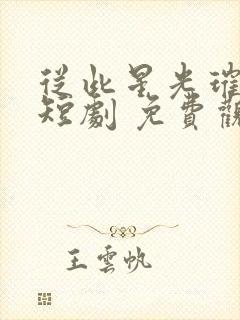 從此星光璀
短劇 免費觀
王雲帆